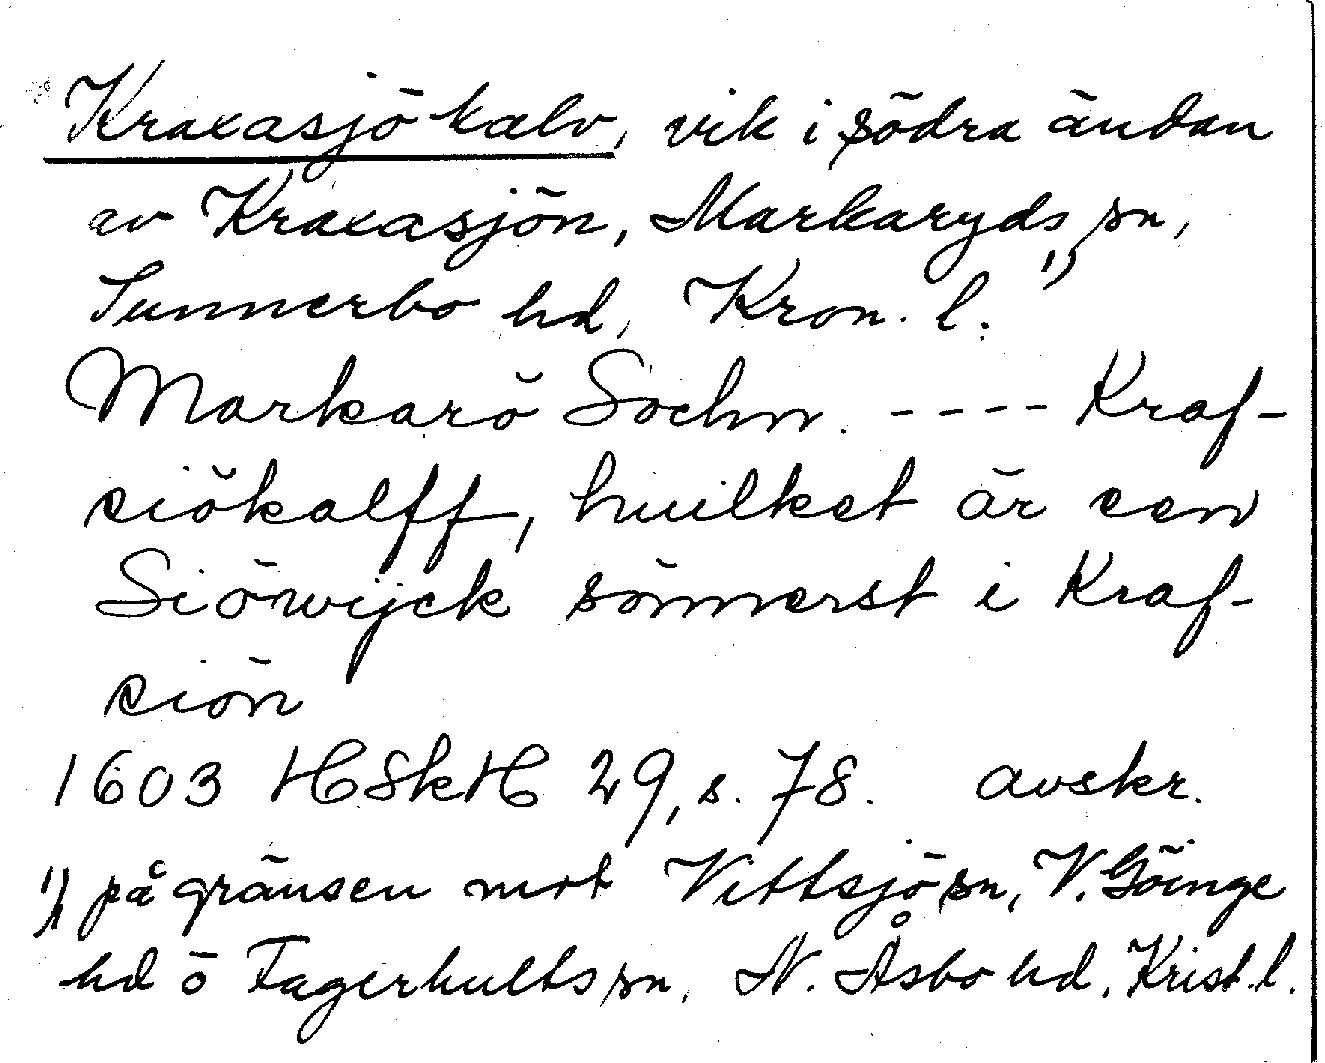 Kraxasjö kalv, vik i södra ändan
av Kraxasjön, Markaryds sn,
Sunnerbo hd, Kron. l. 1)
Markarö Sochn. ---- Kraf-
siökalff, huilket är een
Siöwijck sönnerst i Kraf-
siön
1603 HSkH 29, s. 78. avskr.
1) på gränsen mot Vittsjö sn, V. Göinge
hd o Fagerhults sn, N. Åsbo hd, Krist. l.